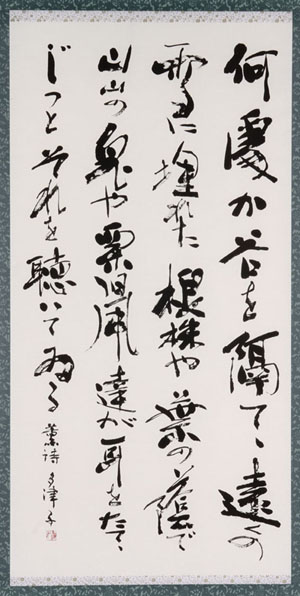 何處か谷を隔てゝ遠くの
雪に埋れた根株や葉の蔭で
山山の兎や栗鼠達が耳をたてゝ
じつとそれを聴いてゐる
薫詩 多津子